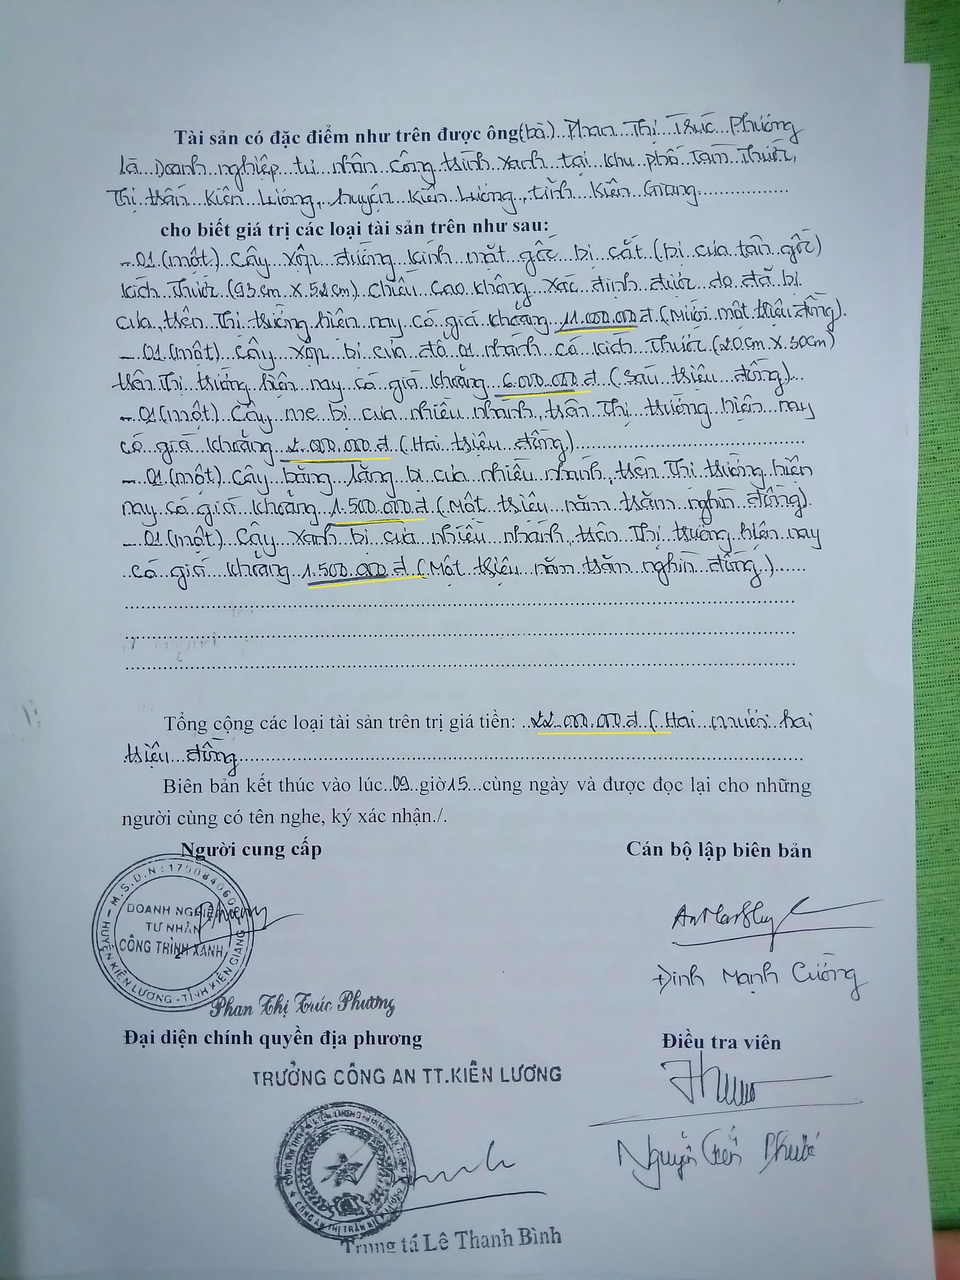 Tài sản có đặc điểm như trên được ông(bà)..Phan..Thị..Trúc..Phương
là..Doanh nghiệp..tư..nhân..Công..trình..xanh..tại..khu..phố..Tám..Thước,
Thị..trấn..Kiên..Lương,..huyện..Kiên..Lương,..tỉnh..Kiên..Giang...............
cho biết giá trị các loại tài sản trên như sau:
-..01.(một)..Cây..xộp..đường..kính..mặt..gốc..bị..cắt..(bị..cưa..tận..gốc)
kích..thước..(93.cm..X.52.cm)..chiều..cao..không..xác..định..được..do..đã..bị
cưa,..trên..thị..trường..hiện..nay..có..giá..khoảng..11.000.000.đ.(Mười..một..triệu..đồng).
-..01..(một)..Cây..xộp..bị..cưa..đổ..01..nhánh..có..kích..thước..(20cm.X.30cm)
trên..thị..trường..hiện..nay..có..giá..khoảng..6.000.000.đ..(Sáu..triệu..đồng)...
-..01(một)..Cây..me..bị..cưa..nhiều..nhánh,..trên..thị..trường..hiện..nay
có..giá..khoảng..2.000.000.đ..(Hai..triệu..đồng)...............
-..01.(một)..Cây..bằng..lăng..bị..cưa..nhiều..nhánh,..trên..thị..trường..hiện
nay..có..giá..khoảng..1.500.000.đ..(Một..triệu..năm..trăm..nghìn..đồng).
-..01..(một)..Cây..xanh..bị..cưa..nhiều..nhánh,..trên..thị..trường..hiện..nay
có..giá..khoảng..1.500.000.đ.(Một..triệu..năm..trăm..nghìn..đồng.)......
Tổng cộng các loại tài sản trên trị giá tiền: ..22.000.000.đ.(.Hai..mươi..hai
triệu...đồng...............
Biên bản kết thúc vào lúc..09..giờ15...cùng ngày và được đọc lại cho những
người cùng có tên nghe, ký xác nhận./.
Người cung cấp
Cán bộ lập biên bản
M.S.D.N: 170084060
DOANH NGHIỆP
TƯ NHÂN
CÔNG TRÌNH XANH
HUYỆN KIÊN LƯƠNG - TỈNH KIÊN GIANG
Đinh Mạnh Cường
Phan Thị Trúc Phương
Đại diện chính quyền địa phương
Điều tra viên
TRƯỞNG CÔNG AN TT.KIÊN LƯƠNG
Nguyễn Tiến Phước
Trung tá Lê Thanh Bình